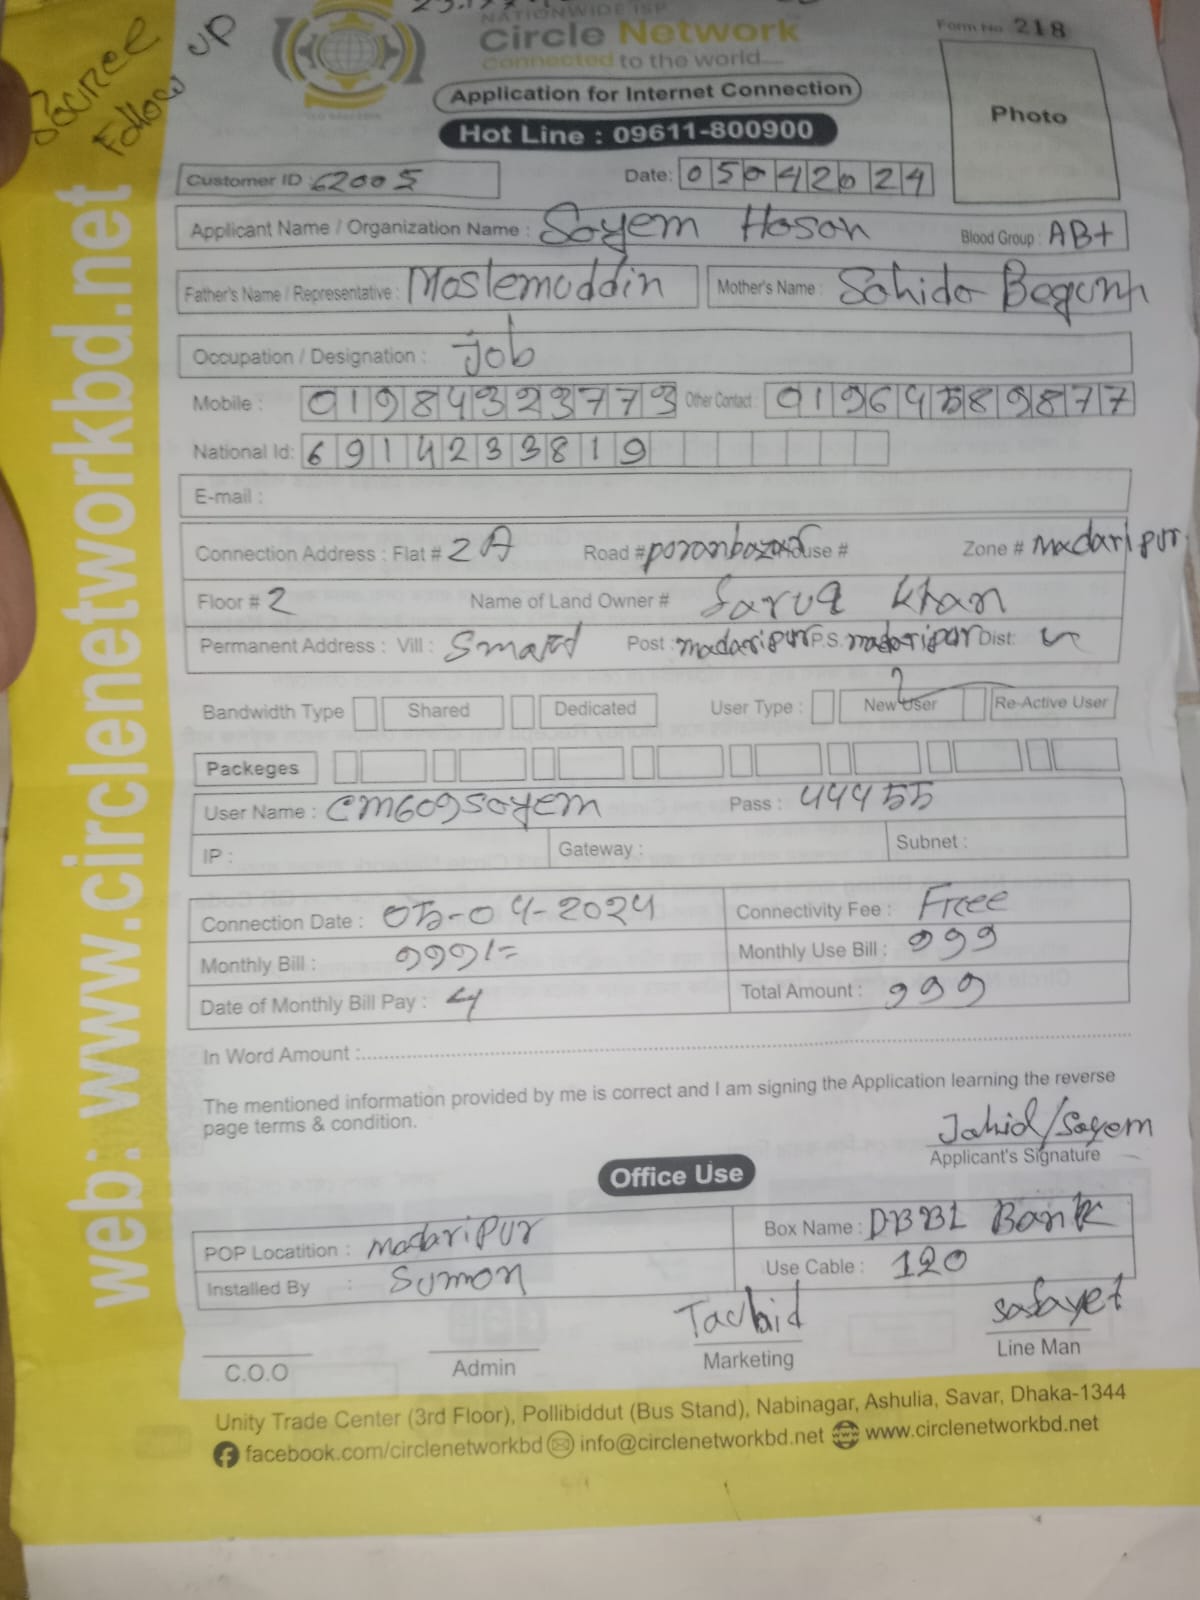 Follow UP
NATIONWIDE ISP
Circle Network
Connected to the world....
Form No. 218
Photo
Application for Internet Connection
Hot Line : 09611-800900
Customer ID : 62005
Date: 05042024
Applicant Name / Organization Name : Sayem Hosan
Blood Group : AB+
Father's Name / Representative : Moslemuddin
Mother's Name : Sahida Begum
Occupation / Designation : Job
Mobile : 01984323773 Other Contact : 01964589877
National Id: 6914233819
E-mail :
Connection Address : Flat # 2A Road # poranbazar House # Zone # Madaripur
Floor # 2 Name of Land Owner # Faruq Khan
Permanent Address : Vill : Post : madaripur P.S. madaripur Dist: 
Bandwidth Type Shared Dedicated User Type : New User Re-Active User
Packeges
User Name : CM609Sayem Pass : 444555
IP : Gateway : Subnet :
Connection Date : 05-04-2024 Connectivity Fee : Free
Monthly Bill : 999/= Monthly Use Bill : 999
Date of Monthly Bill Pay : 4 Total Amount : 999
In Word Amount :
The mentioned information provided by me is correct and I am signing the Application learning the reverse
page terms & condition.
Jahid/Sayem
Applicant's Signature
Office Use
POP Locatition : madaripur Box Name : DBBL Bank
Installed By : Sumon Use Cable : 120
Safayet
C.O.O Admin Marketing Line Man
Unity Trade Center (3rd Floor), Pollibiddut (Bus Stand), Nabinagar, Ashulia, Savar, Dhaka-1344
facebook.com/circlenetworkbd info@circlenetworkbd.net www.circlenetworkbd.net
web: www.circlenetworkbd.net